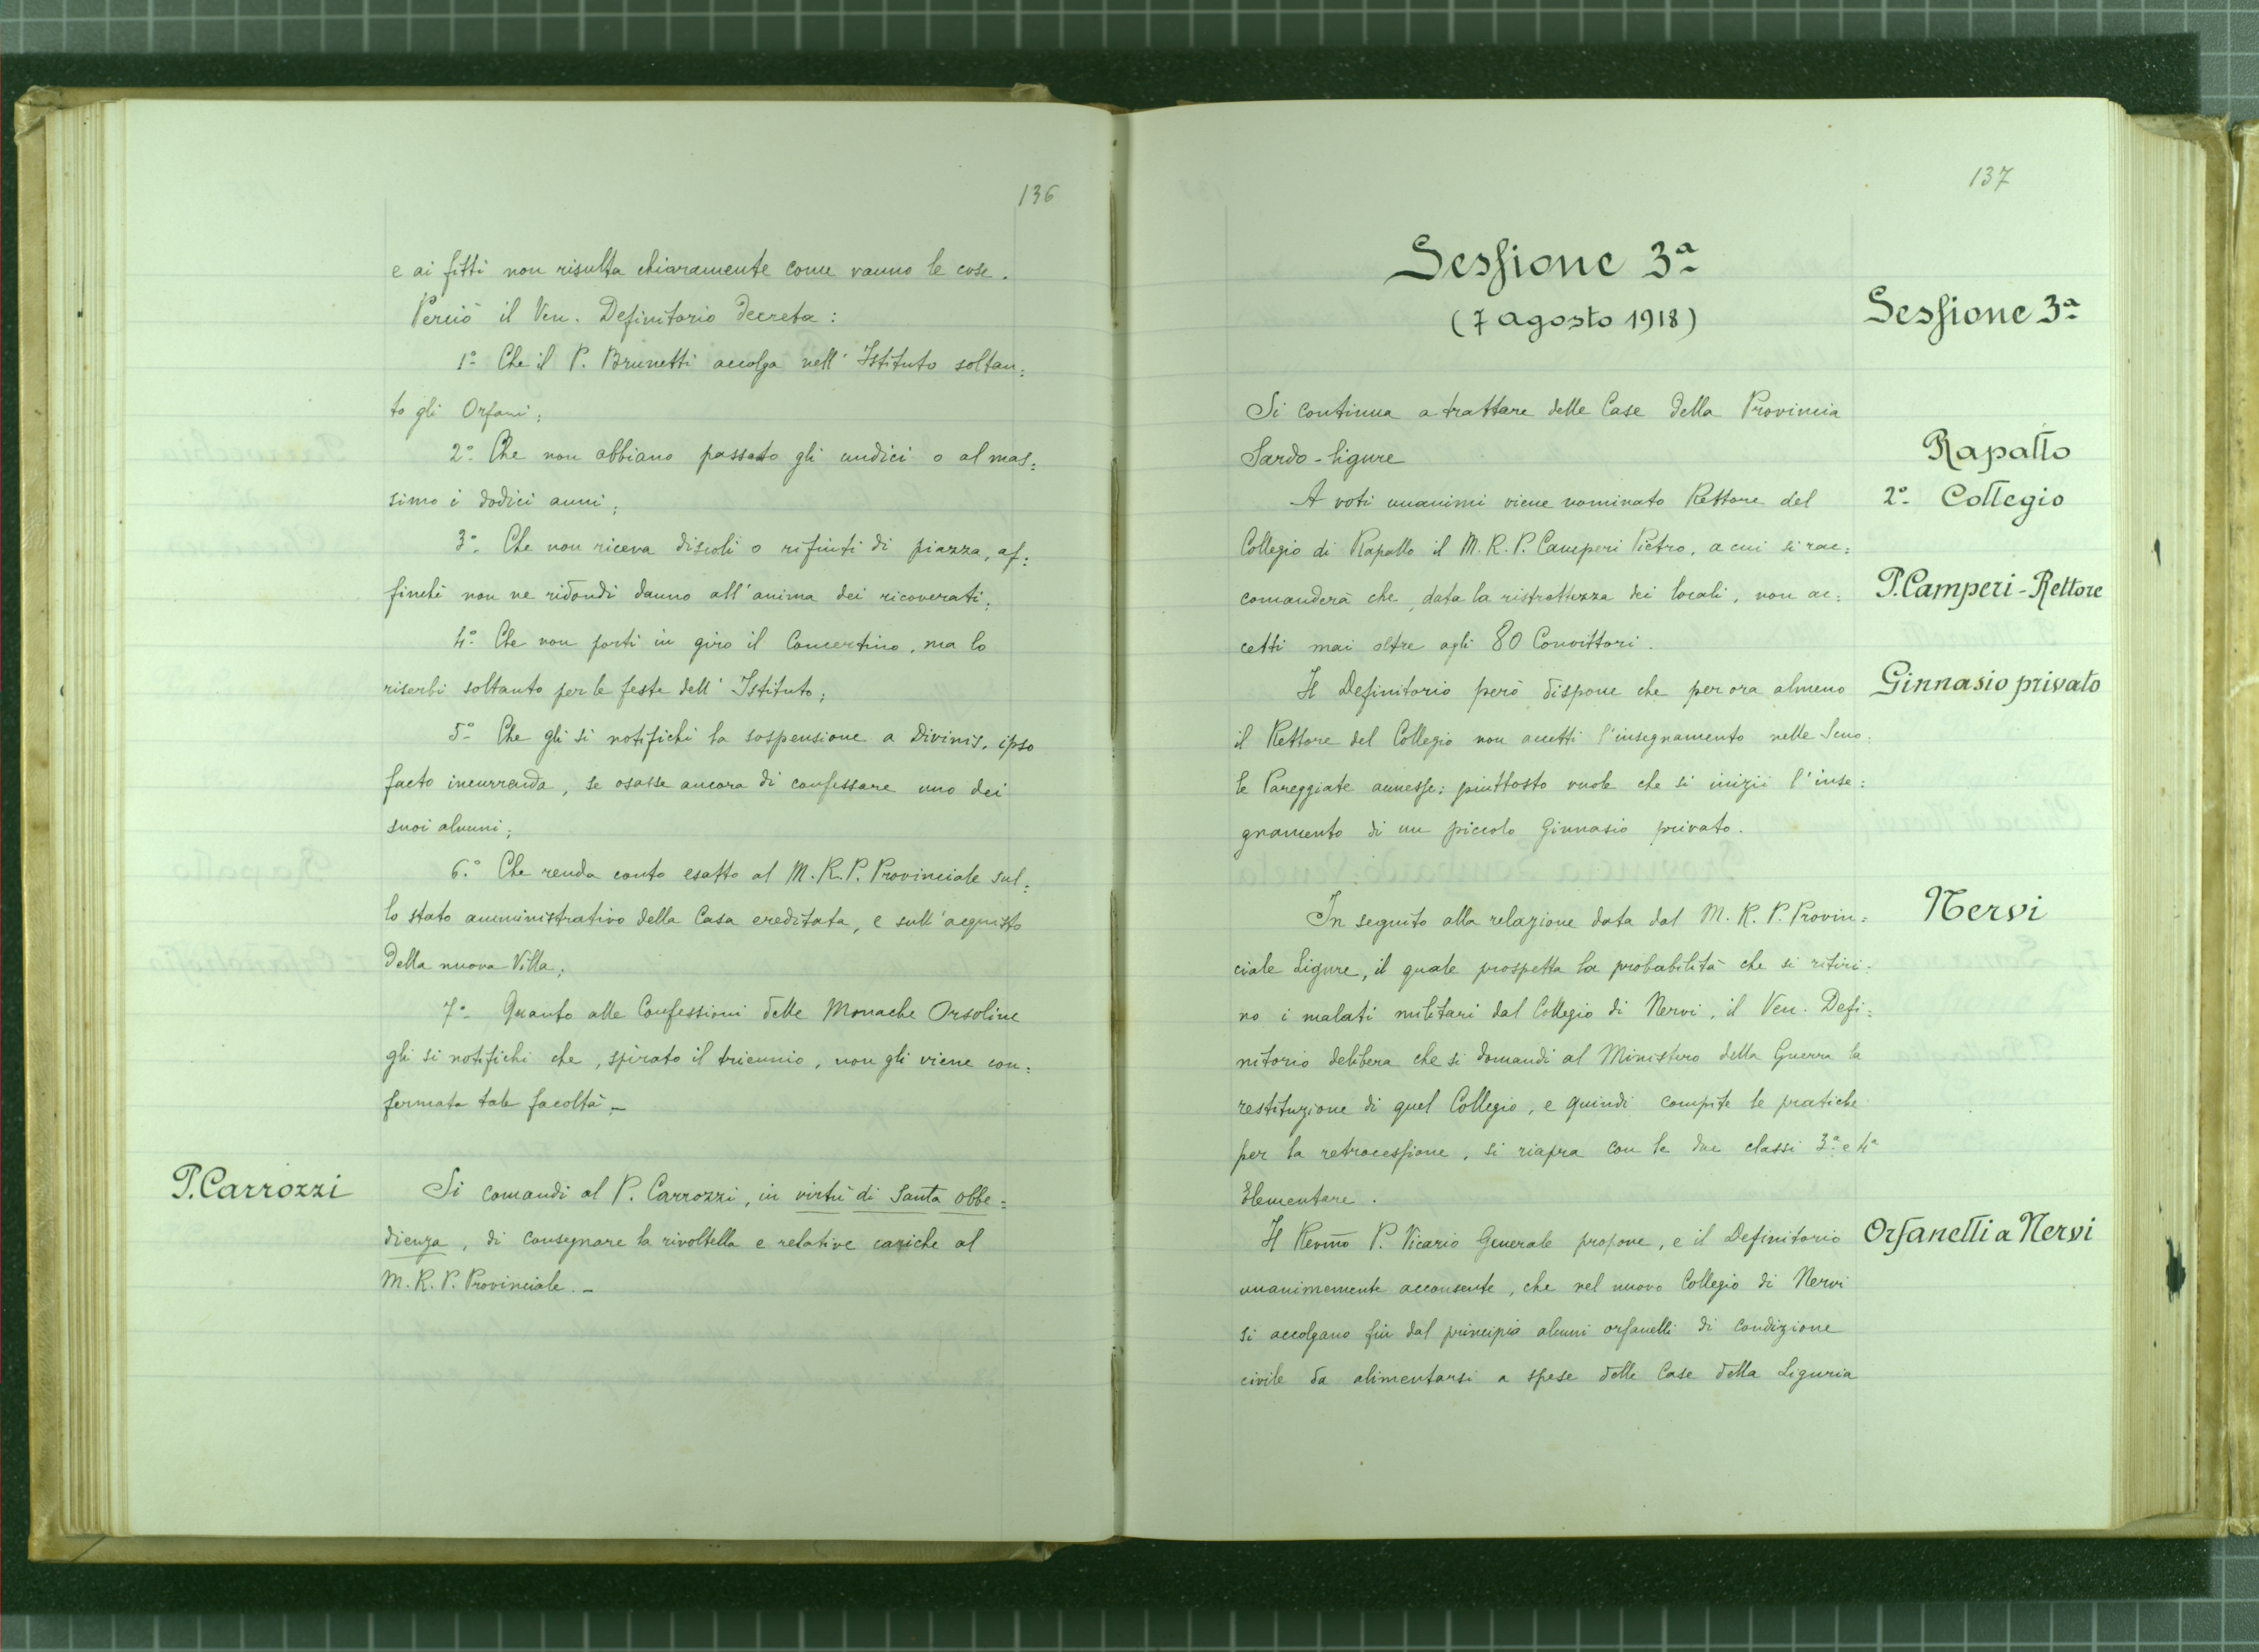 136
e ai fitti non risulta chiaramente come vanno le cose.
Perciò il Ven. Definitorio decreta:
1º Che il P. Brunetti accolga nell' Istituto soltan=
to gli Orfani;
2º Che non abbiano passato gli undici o al mas=
simo i dodici anni;
3º. Che non riceva discoli o rifiuti di piazza, af=
finchè non ne ridondi danno all'anima dei ricoverati;
4º Che non porti in giro il Concertino, ma lo
riserbi soltanto per le feste dell' Istituto;
5º Che gli si notifichi la sospensione a Divinis, ipso
facto incurranda, se osasse ancora di confessare uno dei
suoi alunni;
6.º Che renda conto esatto al M. R. P. Provinciale sul=
lo stato amministrativo della Casa ereditata, e sull'acquisto
della nuova Villa;
7º Quanto alle Confessioni delle Monache Orsoline
gli si notifichi che, spirato il triennio, non gli viene con=
fermata tale facoltà. –
P. Carrozzi
Si comandi al P. Carrozzi, in virtù di Santa obbe=
dienza, di consegnare la rivoltella e relative cariche al
M. R. P. Provinciale. –
137
Sessione 3ª
(7 agosto 1918)
Sessione 3ª
Si continua a trattare delle Case della Provincia
Sardo-ligure
Rapallo
A voti unanimi viene nominato Rettore del
2º Collegio
Collegio di Rapallo il M. R. P. Camperi Pietro, a cui si rac=
comanderà che, data la ristrettezza dei locali, non ac=
P. Camperi - Rettore
cetti mai oltre agli 80 Convittori.
Il Definitorio però dispone che per ora almeno
Ginnasio privato
il Rettore del Collegio non accetti l'insegnamento nelle Scuo=
le Pareggiate annesse; piuttosto vuole che si inizii l'inse=
gnamento di un piccolo Ginnasio privato.
Nervi
In seguito alla relazione data dal M. R. P. Provin=
ciale Ligure, il quale prospetta la probabilità che si ritiri=
no i malati militari dal Collegio di Nervi, il Ven. Defi=
nitorio delibera che si domandi al Ministero della Guerra la
restituzione di quel Collegio, e quindi compite le pratiche
per la retrocessione, si riapra con le due classi 3ª e 4ª
Elementare.
Il Revmo P. Vicario Generale propone, e il Definitorio
Orfanelli a Nervi
unanimemente acconsente, che nel nuovo Collegio di Nervi
si accolgano fin dal principio alcuni orfanelli di condizione
civile da alimentarsi a spese delle Case della Liguria